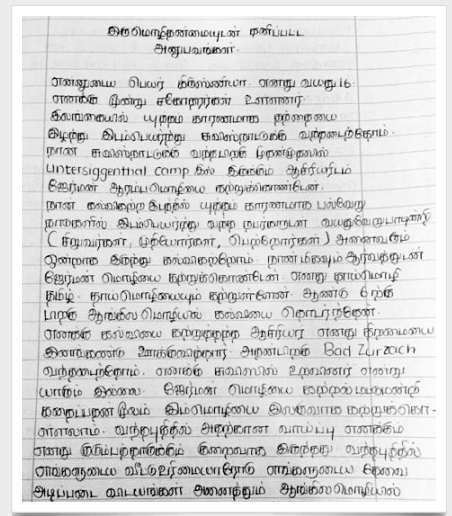 இருமொழிதன்மையுடன் தனிப்பட்ட
அனுபவங்கள்.
என்னுடைய பெயர் கிருஸ்ணியா. எனது வயது 16.
எனக்கு மூன்று சகோதரர்கள் உள்ளனர்.
இலங்கையில் யுத்தம் காரணமாக தந்தையை
இழந்து இடம்பெயர்ந்து சுவிஸ்நாட்டுக்கு வந்தடைந்தோம்.
நான் சுவிஸ்நாட்டுக்கு வந்தபிறகு முதன்முதலில்
Untersiggenthal camp இல் இருக்கும் ஆசிரியரிடம்
ஜேர்மன் ஆரம்பமொழியை கற்றுக்கொண்டேன்.
நான் கல்விகற்ற இடத்தில் யுத்தம் காரணமாக பல்வேறு
நாடுகளில் இடம்பெயர்ந்து வந்த நபர்களுடன் வயதுவேறுபாடின்றி
(சிறுவர்கள், முதியோர்கள், பெற்றோர்கள்) அனைவரும்
ஒன்றாக இருந்து கல்விகற்றோம். நான் மிகவும் ஆர்வத்துடன்
ஜேர்மன் மொழியை கற்றுக்கொண்டேன். எனது தாய்மொழி
தமிழ். தாய்மொழியையும் கற்றுள்ளேன். ஆண்டு 6ற்கு
பிறகு ஆங்கில மொழியில் கல்வியை தொடர்ந்தேன்.
எனக்கு கல்வியை கற்றுத்தந்த ஆசிரியர் எனது திறமையை
இனங்கண்டு ஊக்குவித்தார். அதன்பிறகு Bad Zurzach
வந்தடைந்தோம். எனக்கு சுவிஸில் உறவினர் என்று
யாரும் இல்லை. ஜேர்மன் மொழியை கற்றல் மட்டுமன்றி
கதைப்பதன் மூலம் இம்மொழியை இலகுவாக கற்றுக்கொ-
ள்ளலாம். வந்தபுதிதில் அதற்கான வாய்ப்பு எனக்கும்
எனது குடும்பத்தாருக்கும் குறைவாக இருந்தது. வந்தபுதிதில்
எங்களுடைய வீட்டுஉரிமையாரோடு எங்களுடைய தேவை
அடிப்படை விடயங்கள் அனைத்தும் ஆங்கிலமொழியில்